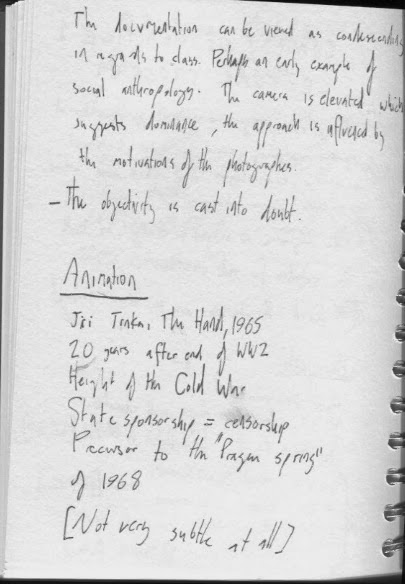 The documentation can be viewed as condescending
in regards to class. Perhaps an early example of
social anthropology. The camera is elevated which
suggests dominance, the approach is influenced by
the motivations of the photographer.
- The objectivity is cast into doubt.
Animation
Jiri Trnka, The Hand, 1965
20 years after end of WW2
Height of the Cold War
State sponsorship = censorship
Precursor to the "Prague spring"
of 1968
[Not very subtle at all]